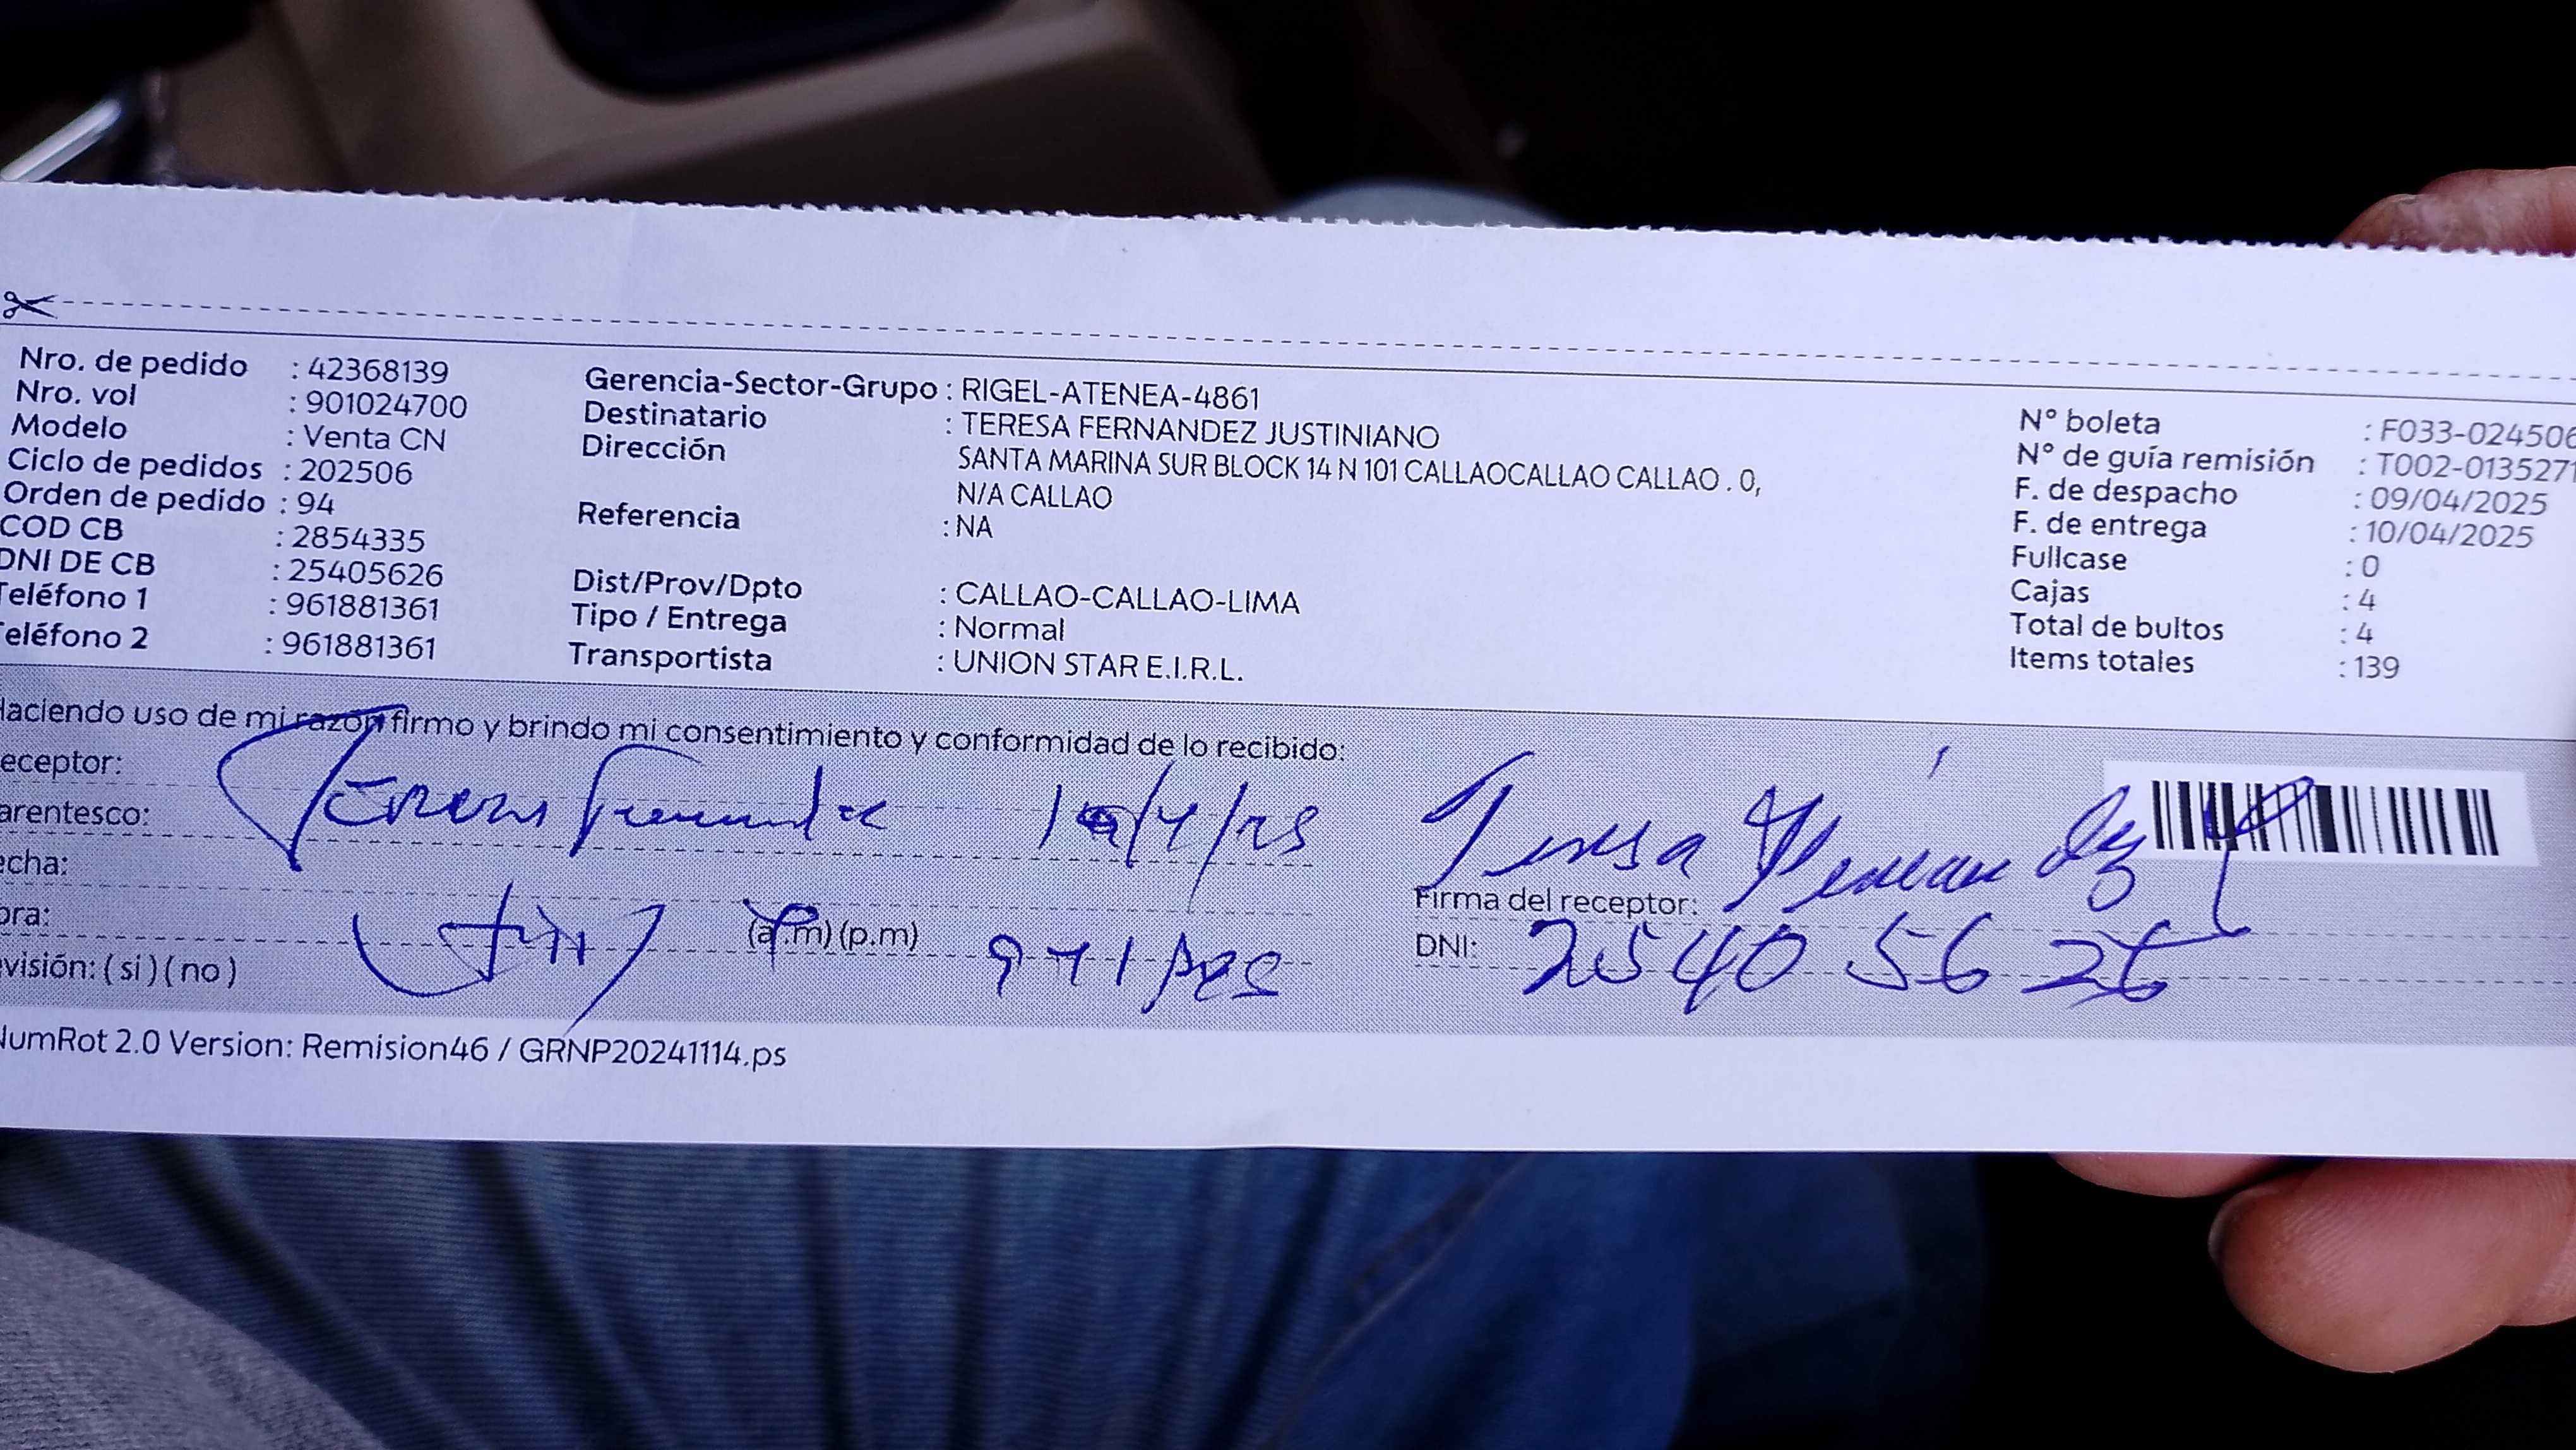 Nro. de pedido : 42368139
Nro. vol : 901024700
Modelo : Venta CN
Ciclo de pedidos : 202506
Orden de pedido : 94
COD CB : 2854335
DNI DE CB : 25405626
Teléfono 1 : 961881361
eléfono 2 : 961881361
Gerencia-Sector-Grupo : RIGEL-ATENEA-4861
Destinatario : TERESA FERNANDEZ JUSTINIANO
Dirección SANTA MARINA SUR BLOCK 14 N 101 CALLAOCALLAO CALLAO . 0,
N/A CALLAO
Referencia : NA
Dist/Prov/Dpto : CALLAO-CALLAO-LIMA
Tipo / Entrega : Normal
Transportista : UNION STAR E.I.R.L.
N° boleta : F033-024506
N° de guía remisión : T002-0135271
F. de despacho : 09/04/2025
F. de entrega : 10/04/2025
Fullcase : 0
Cajas : 4
Total de bultos : 4
Items totales : 139
Haciendo uso de mi razón firmo y brindo mi consentimiento y conformidad de lo recibido:
eceptor:
arentesco:
echa:
ora: (a.m) (p.m)
visión: ( si ) ( no )
Teresa
Firma del receptor:
DNI: 25405626
NumRot 2.0 Version: Remision46 / GRNP20241114.ps